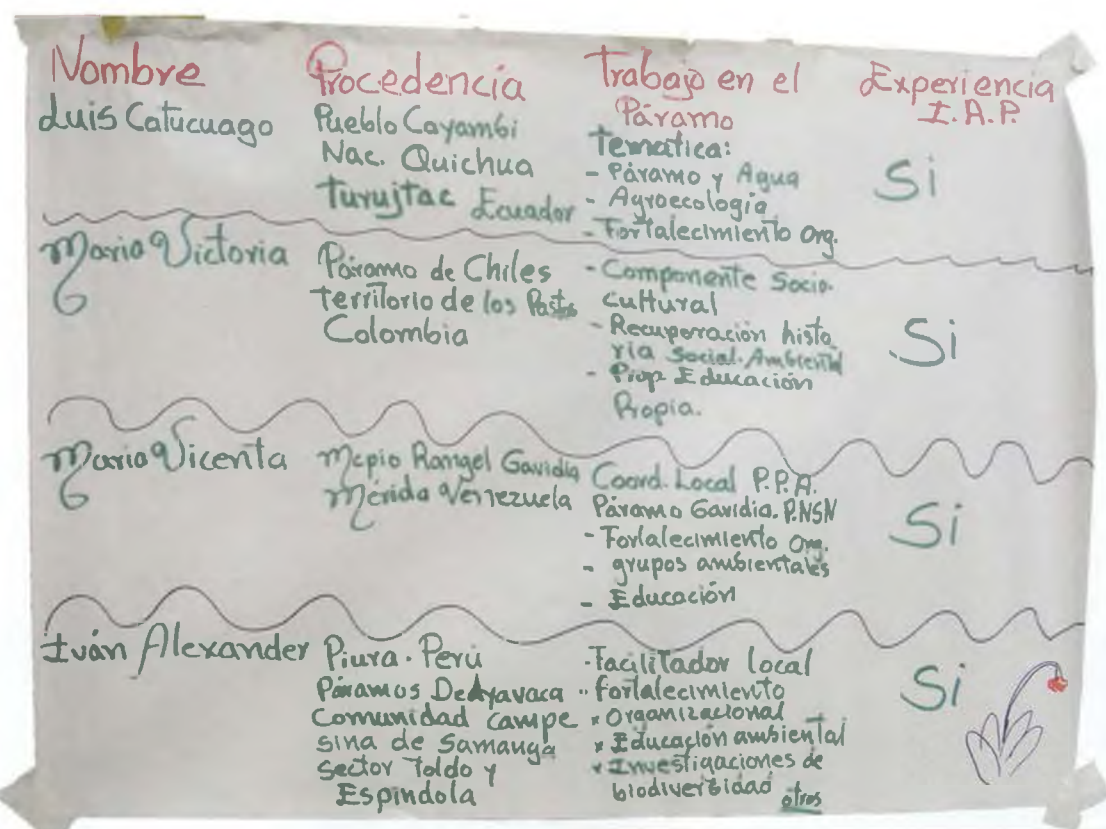 Nombre
Procedencia
Trabajo en el
Páramo
Experiencia
I.A.P.
Luis Catucuago
Pueblo Cayambi
Nac. Quichua
Turujtac Ecuador
Tematica:
- Páramo y Agua
- Agroecología
- Fortalecimiento Org.
Si
Maria Victoria
Páramo de Chiles
Territorio de los Pastos
Colombia
- Componente Socio-
cultural
- Recuperación histo
ria Social. Ambiental
- Prop Educación
Propia.
Si
Maria Vicenta
Mcpio Rangel Gavidia
Mérida Venezuela
Coord. Local P.P.A.
Páramo Gavidia. P.NSN
- Fortalecimiento Org.
- grupos ambientales
- Educación
Si
Iván Alexander
Piura. Perú
Páramos De Ayavaca
Comunidad campe
sina de Samanga
Sector Toldo y
Espindola
- Facilitador local
- fortalecimiento
* Organizacional
* Educación ambiental
* Investigaciones de
biodiversidad otros
Si